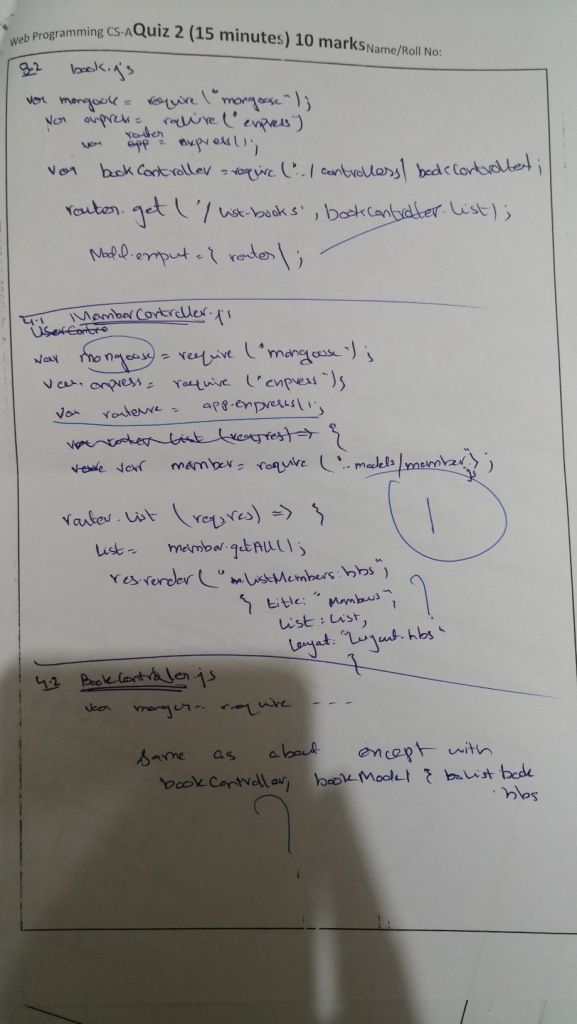 Web Programming CS-A Quiz 2 (15 minutes) 10 marks Name/Roll No:
Q2 book.js
var mongoose = require ("mongoose");
var express = require ('express')
router
var app = express();
var bookController = require ('../controllers/bookController;
router.get ('/list-books', bookController.list);
= { router };
4.1 MemberController.js
UserContro
var mongoose = require ("mongoose");
var express = require ("express");
var = app.express();
List (req, res) => {
var member = require ("..models/member");
js
router.list (req, res) => {
1
List = member.getAll();
res.render ("ListMembers.hbs",
{ title: "Members",
List : List,
layout: "layout.hbs"
}
4.2 BookController.js
require ---
Same as about except with
bookController, bookModel & List book
.hbs